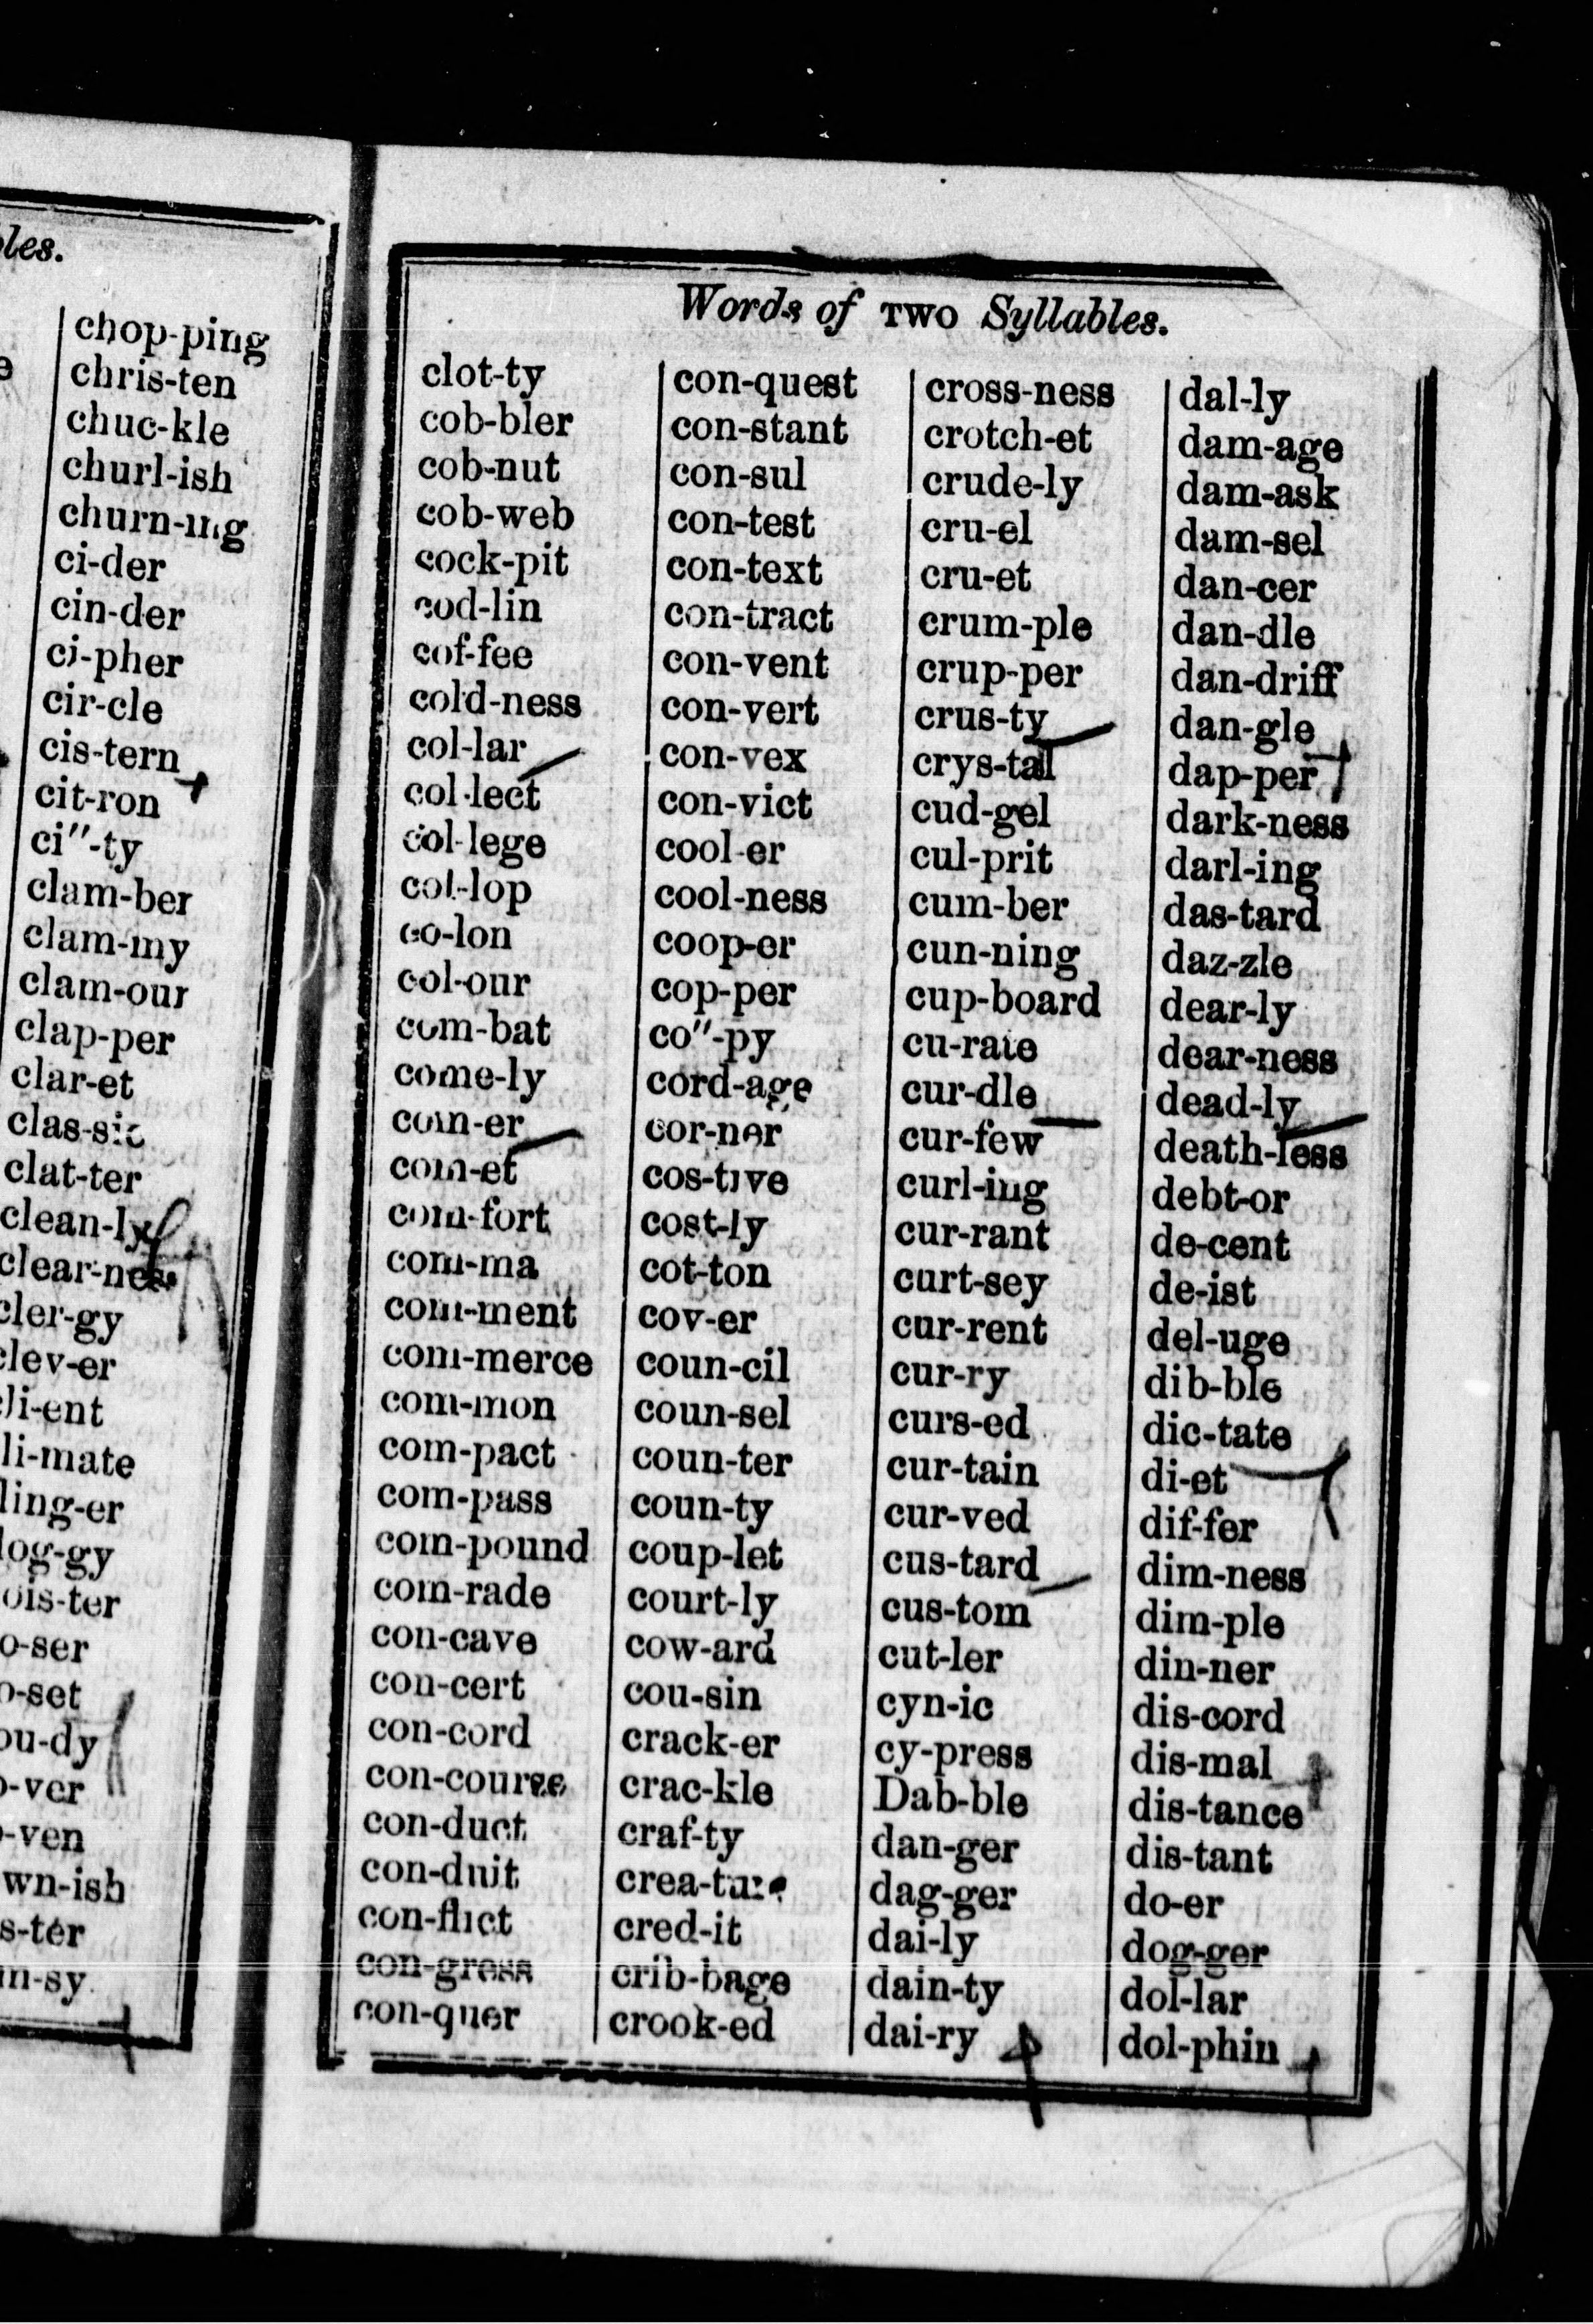 les.
chop-ping
chris-ten
chuc-kle
churl-ish
churn-ing
ci-der
cin-der
ci-pher
cir-cle
cis-tern
cit-ron
ci"-ty
clam-ber
clam-my
clam-our
clap-per
clar-et
clas-sic
clat-ter
clean-ly
clear-ness
cler-gy
clev-er
cli-ent
li-mate
ling-er
log-gy
ois-ter
o-ser
o-set
ou-dy
o-ver
-ven
wn-ish
s-ter
m-sy
Words of TWO Syllables.
clot-ty
cob-bler
cob-nut
cob-web
cock-pit
cod-lin
cof-fee
cold-ness
col-lar
col-lect
col-lege
col-lop
co-lon
col-our
com-bat
come-ly
com-er
com-et
com-fort
com-ma
com-ment
com-merce
com-mon
com-pact
com-pass
com-pound
com-rade
con-cave
con-cert
con-cord
con-course
con-duct
con-duit
con-flict
con-gress
con-quer
con-quest
con-stant
con-sul
con-test
con-text
con-tract
con-vent
con-vert
con-vex
con-vict
cool-er
cool-ness
coop-er
cop-per
co"-py
cord-age
cor-ner
cos-tive
cost-ly
cot-ton
cov-er
coun-cil
coun-sel
coun-ter
coun-ty
coup-let
court-ly
cow-ard
cou-sin
crack-er
crac-kle
craf-ty
crea-ture
cred-it
crib-bage
crook-ed
cross-ness
crotch-et
crude-ly
cru-el
cru-et
crum-ple
crup-per
crus-ty
crys-tal
cud-gel
cul-prit
cum-ber
cun-ning
cup-board
cu-rate
cur-dle
cur-few
curl-ing
cur-rant
curt-sey
cur-rent
cur-ry
curs-ed
cur-tain
cur-ved
cus-tard
cus-tom
cut-ler
cyn-ic
cy-press
Dab-ble
dan-ger
dag-ger
dai-ly
dain-ty
dai-ry
dal-ly
dam-age
dam-ask
dam-sel
dan-cer
dan-dle
dan-driff
dan-gle
dap-per
dark-ness
darl-ing
das-tard
daz-zle
dear-ly
dear-ness
dead-ly
death-less
debt-or
de-cent
de-ist
del-uge
dib-ble
dic-tate
di-et
dif-fer
dim-ness
dim-ple
din-ner
dis-cord
dis-mal
dis-tance
dis-tant
do-er
dog-ger
dol-lar
dol-phin